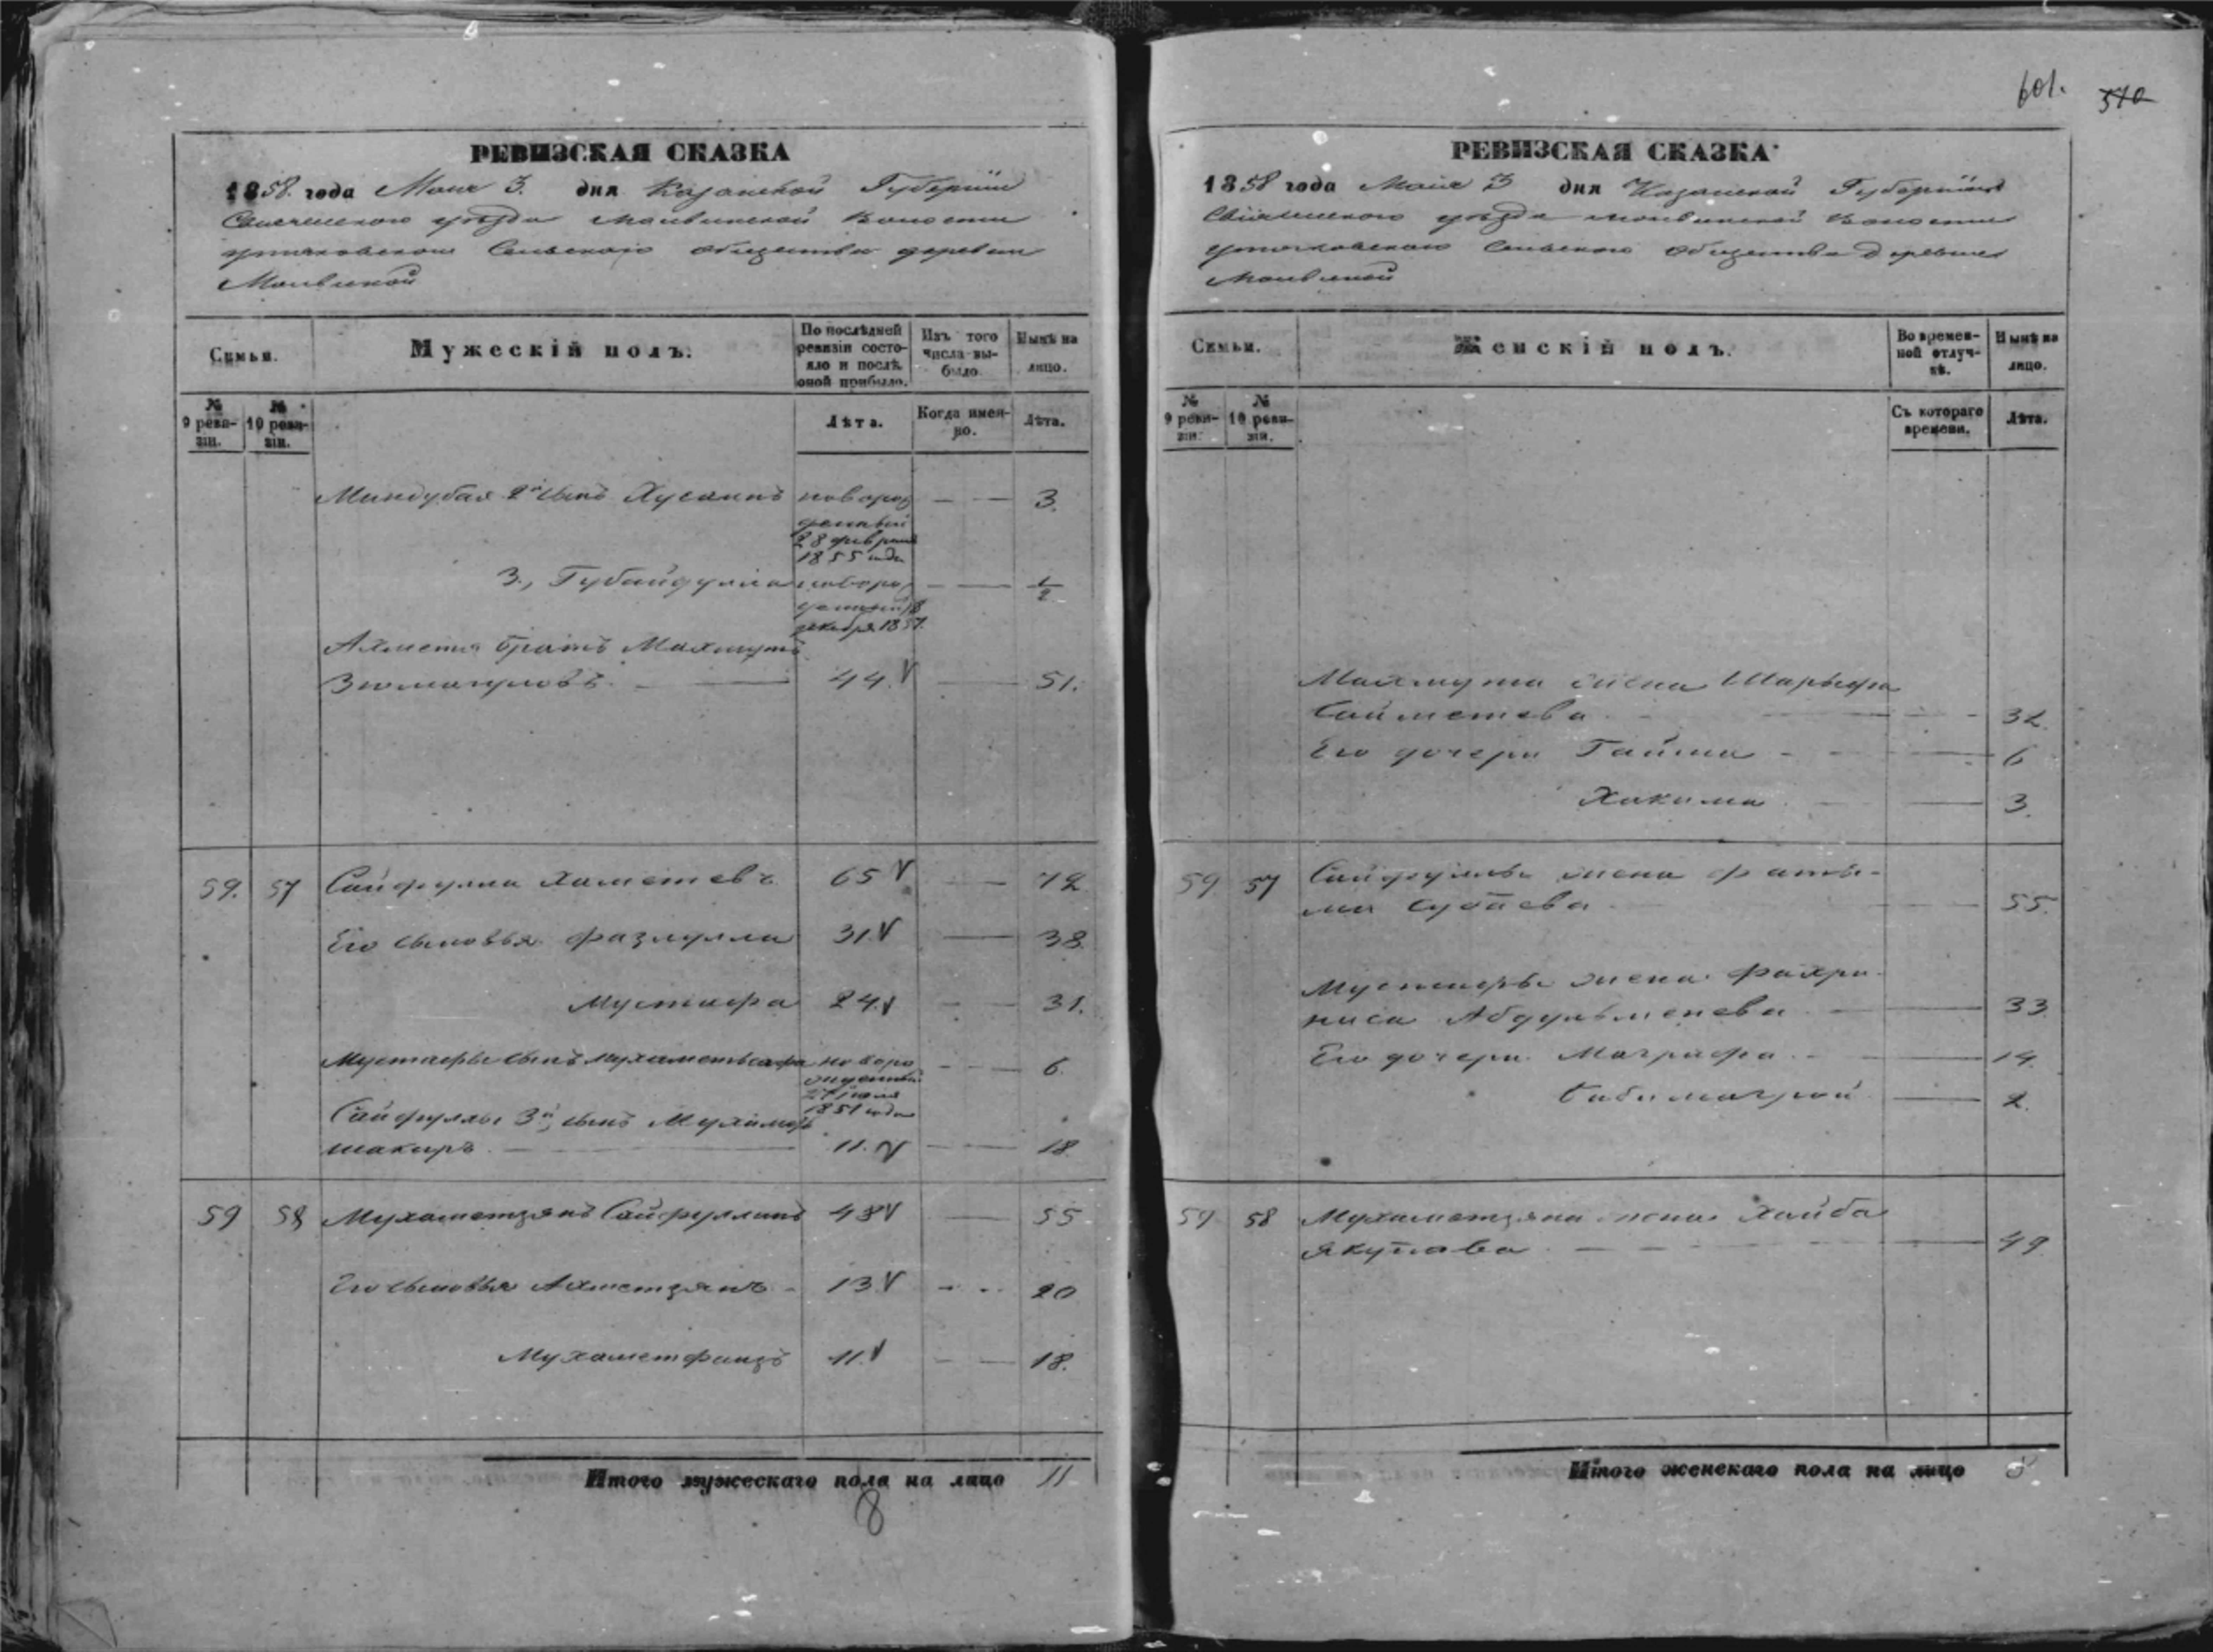 601. 510
РЕВИЗСКАЯ СКАЗКА
1858 года Мая 3 дня Казанской Губернии
Свіяжскаго уѣзда Волости
Сельскаго общества деревни
Семьи.
Мужескій полъ.
По послѣдней ревизіи состояло и послѣ оной прибыло.
Изъ того числа выбыло.
Нынѣ на лицо.
№ 9 ревизіи.
№ 10 ревизіи.
Лѣта.
Когда именно.
Лѣта.
2й сынъ Хусаинъ новорожденный 28 февраля 1855 года — — 3.
3., Губайдулла новорожденный 18 декабря 1857. — — 1/2
Ахмета братъ Махмутъ
— 44. V — 51.
59. 57 Сайфулла Хаметевъ 65 V — — 72
Его сыновья Фазлулла 31. V — 38.
Мустафа 24. V — — 31.
Мустафы сынъ новорожденный 27 Іюля 1851 года — — 6.
Сайфуллы 3й сынъ Мухаметъ
шакиръ — 11. V — — 18.
59 58 Мухаметзянъ Сайфуллинъ 48 V — 55
Его сыновья Ахметзянъ 13 V — — 20
Мухаметфаизъ 11. V — — 18.
Итого мужескаго пола на лицо 11
8
РЕВИЗСКАЯ СКАЗКА
1858 года Мая 3 дня Казанской Губерніи
Свіяжскаго уѣзда Волости
Сельскаго Общества Деревни
Семьи.
Женскій полъ.
Во временной отлучкѣ.
Нынѣ на лицо.
№ 9 ревизіи.
№ 10 ревизіи.
Съ котораго времени.
Лѣта.
Махмута жена Шарыфа
Саиметева — 32.
Его дочери Гайша — 6
Хакима — 3.
59 57 Сайфуллы жена Фаты-
ма Субаева — 55.
Мустафы жена Фахри-
ниса Абдульменева — 33
Его дочери Маграфа — 14.
— 2.
59 58 Мухаметзяна жена Хайба
Якупова — 49.
Итого женскаго пола на лицо 8